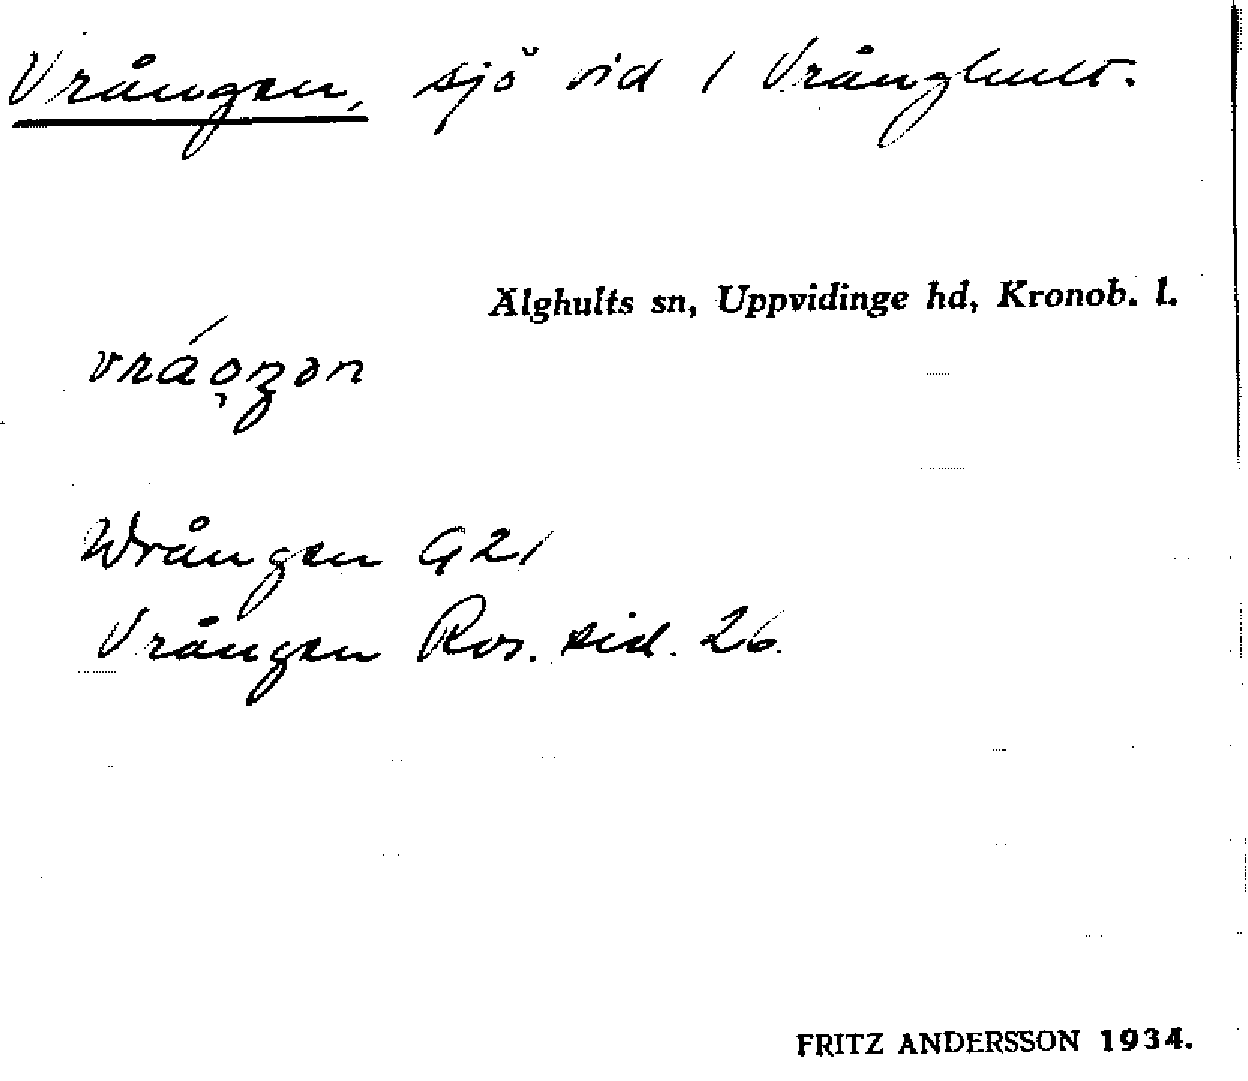 Vrången, sjö vid 1 Vrånghult.
Älghults sn, Uppvidinge hd, Kronob. l.
Wrången G21
Vrången Ros. sid. 26
FRITZ ANDERSSON 1934.